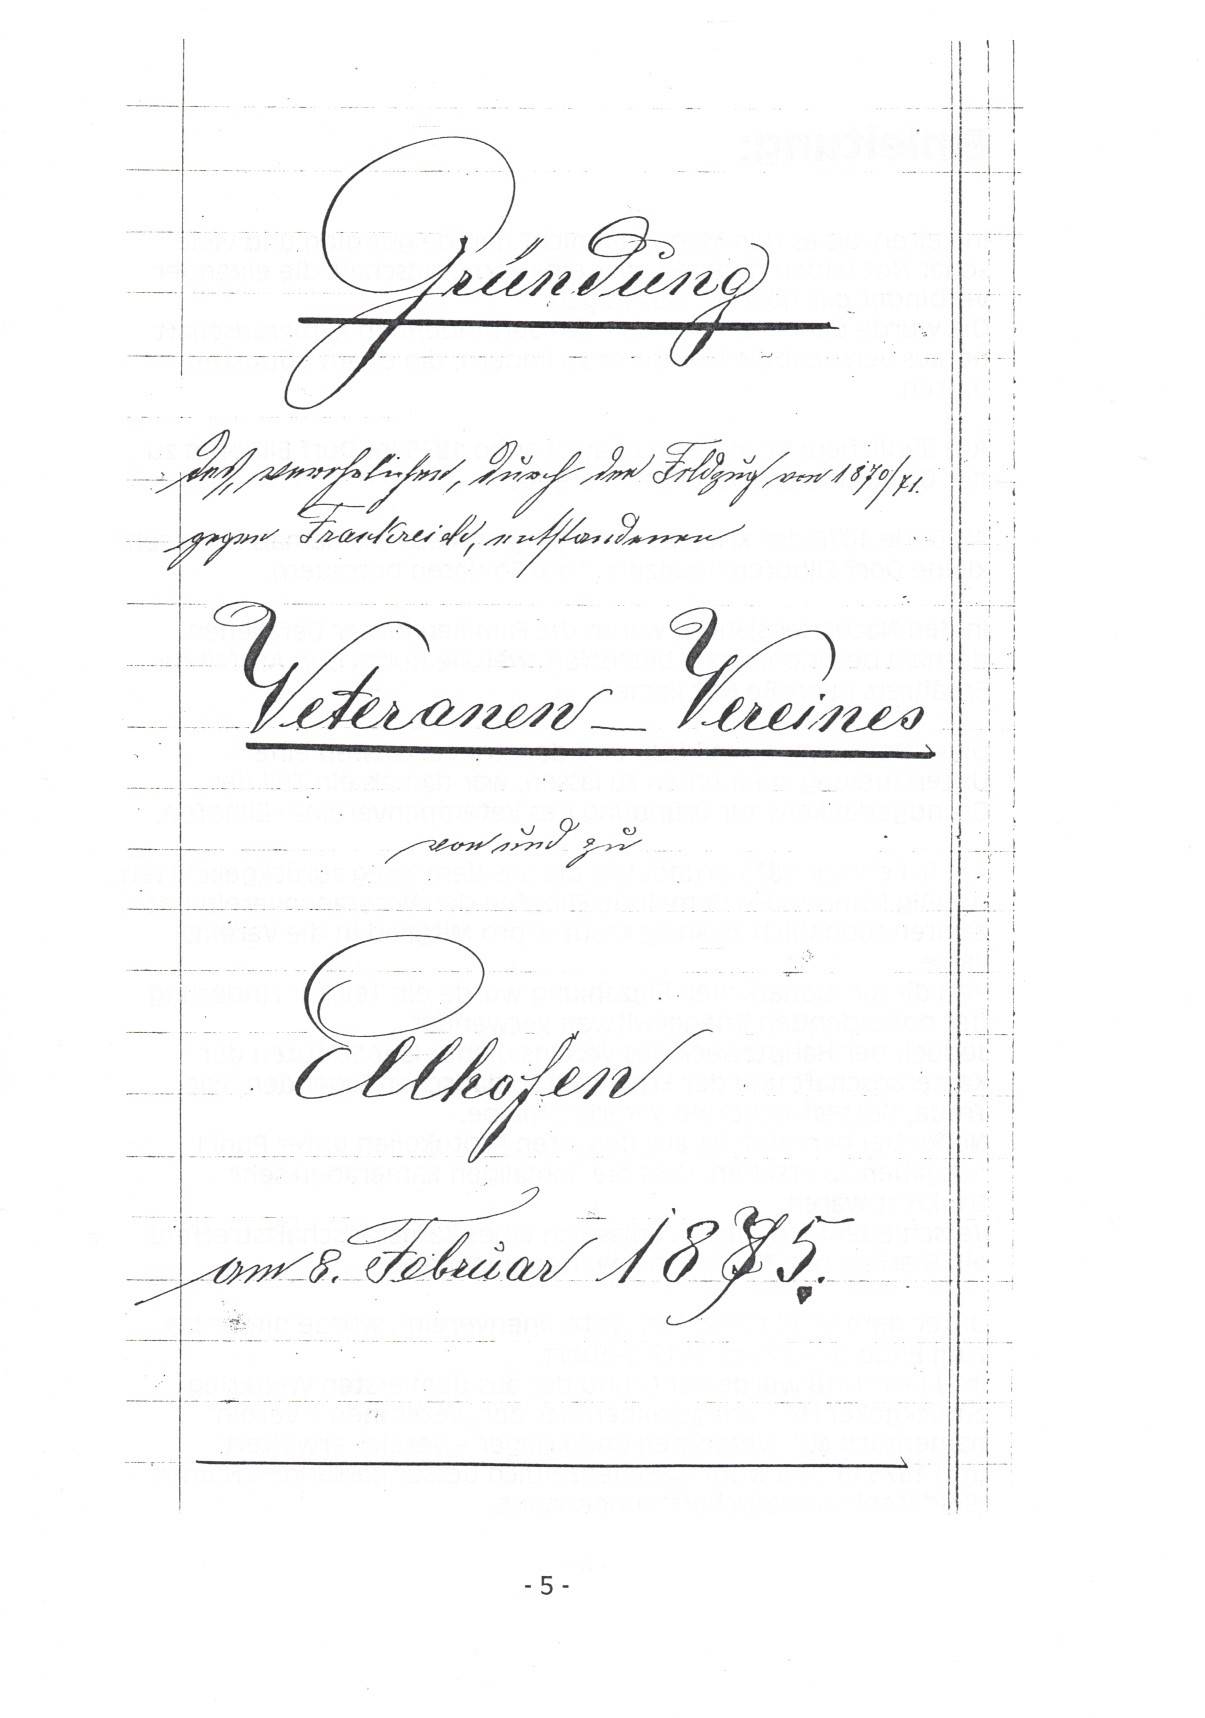 Gründung
des, verehrlichen, durch den Feldzug von 1870/71.
gegen Frankreich, entstandenen
Veteranen – Vereines
von und zu
Ellhofen
am 8. Februar 1875.
- 5 -